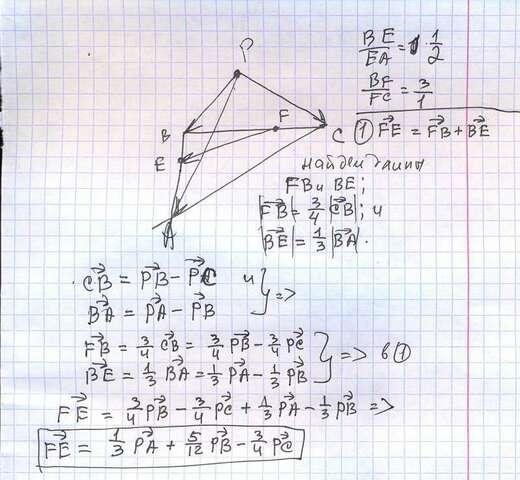 P
B
F
C
E
A
BE/EA = 1/2
BF/FC = 3/1
① F͞E = F͞B + B͞E
найдем длины
FB и BE;
|F͞B| = 3/4 |C͞B|; и
|B͞E| = 1/3 |B͞A|.
C͞B = P͞B - P͞C и
B͞A = P͞A - P͞B } =>
F͞B = 3/4 C͞B = 3/4 P͞B - 3/4 P͞C
B͞E = 1/3 B͞A = 1/3 P͞A - 1/3 P͞B } => в ①
F͞E = 3/4 P͞B - 3/4 P͞C + 1/3 P͞A - 1/3 P͞B =>
F͞E = 1/3 P͞A + 5/12 P͞B - 3/4 P͞C